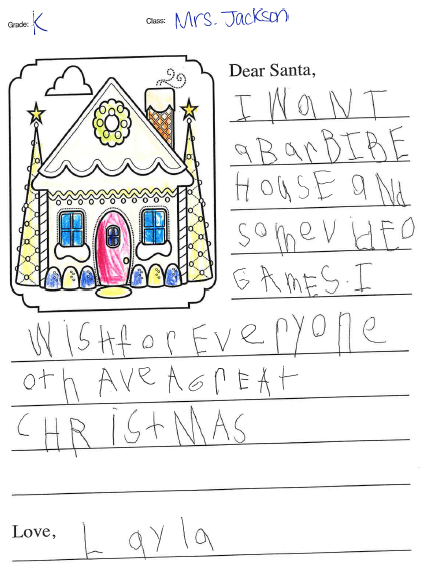 Grade: K Class: Mrs. Jackson
Dear Santa,
I WANT
a BarBIBE
HOUSE AND
somevidEO
GAMES. I
WisHfor Everyone
oth AveAGrEAt
CHRiStMAS
Love, Layla